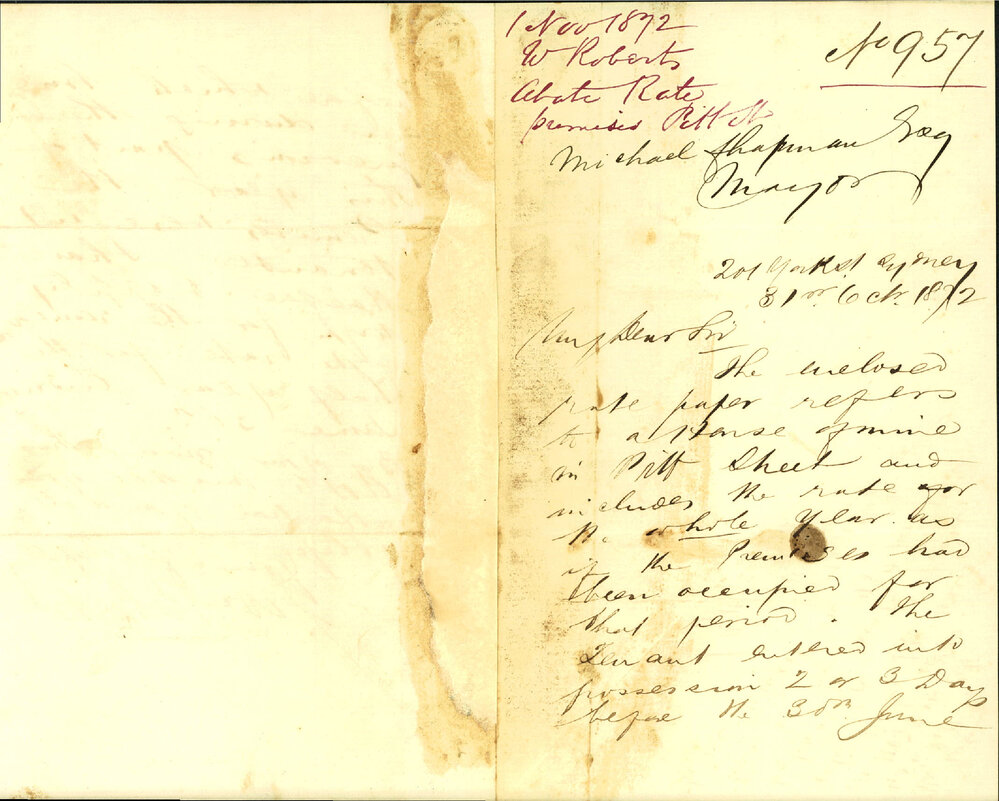 1 Nov 1872
W Roberts
Abate Rate
premises Pitt St
No 957
Michael Chapman Esq
Mayor
201 York St. Sydney
31st Oct. 1872
My Dear Sir
The enclosed
rate paper refers
to a House of mine
in Pitt Street and
includes the rate for
the whole year as
if the Premises had
been occupied for
that period. The
Tenant entered into
possession 2 or 3 Days
before the 30th June